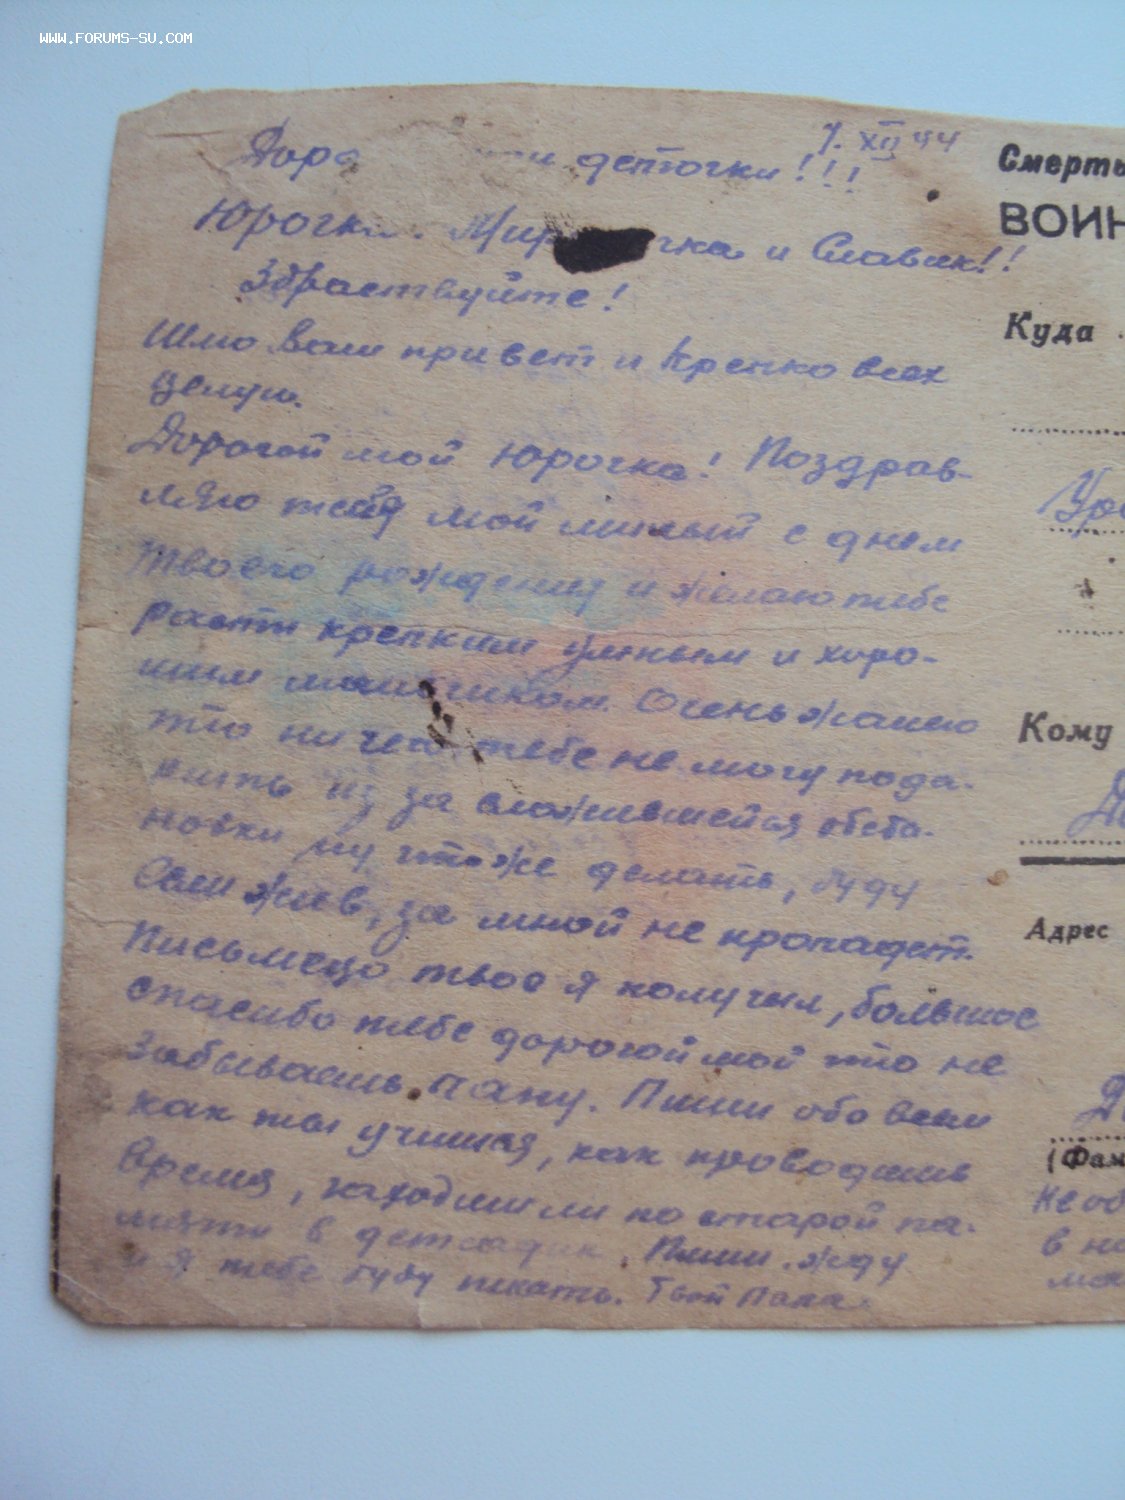 WWW.FORUMS-SU.COM
7. XII 44
деточки!!!
Юрочка. и Славик!!
Здраствуйте!
Шлю Вам привет и крепко всех
целую.
Дорогой мой Юрочка! Поздрав-
ляю тебя мой милый с днем
твоего рождения и желаю тебе
расти крепким умным и хоро-
шим мальчиком. Очень жалею
что ничего тебе не могу пода-
рить из за сложившейся обста-
новки ну что же делать, буду
сам жив, за мной не пропадет.
Письмецо твое я получил, большое
спасибо тебе дорогой мой что не
забываешь папу. Пиши обо всем
как ты учишся, как проводишь
время, заходиш ли по старой па-
мяти в детсадик. Пиши. жду
и я тебе буду писать. Твой папа.
Смерть
ВОИН
Куда
Кому
Адрес
(Фам